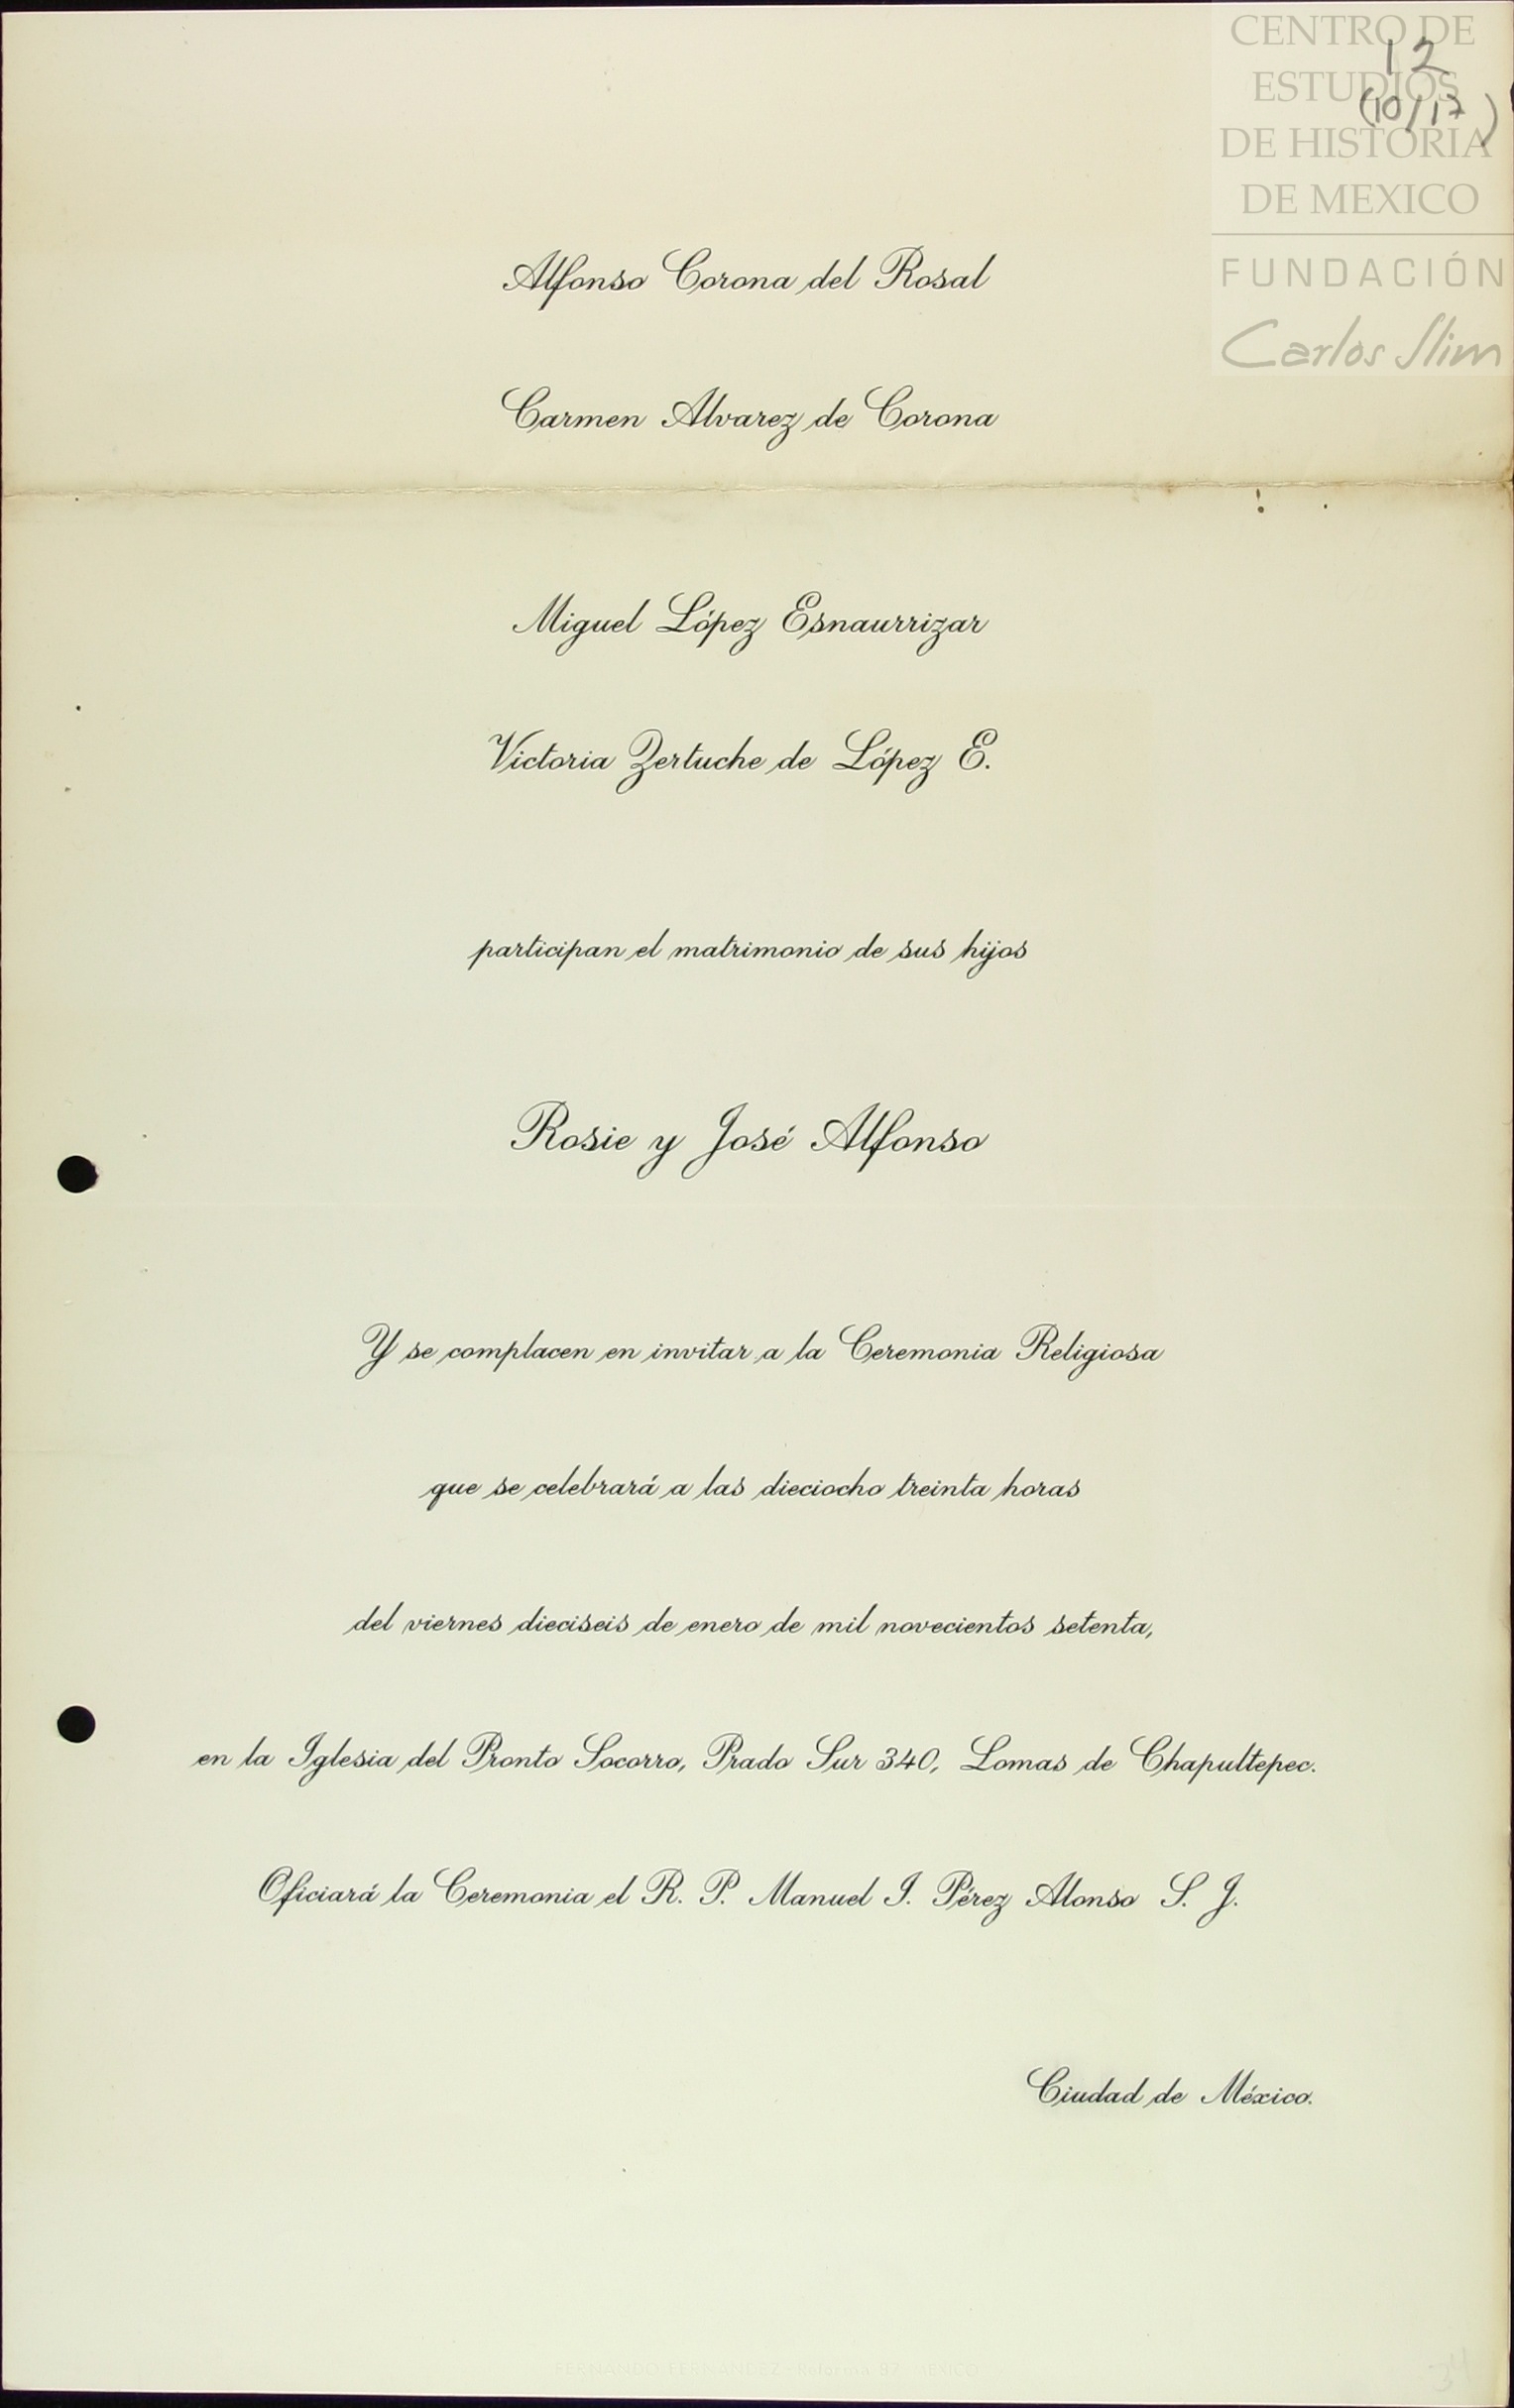 CENTRO DE
ESTUDIOS
DE HISTORIA
DE MEXICO
FUNDACIÓN
Carlos Slim
12
(10/17)
Alfonso Corona del Rosal
Carmen Alvarez de Corona
Miguel López Esnaurrizar
Victoria Zertuche de López E.
participan el matrimonio de sus hijos
Rosie y José Alfonso
Y se complacen en invitar a la Ceremonia Religiosa
que se celebrará a las dieciocho treinta horas
del viernes dieciseis de enero de mil novecientos setenta,
en la Iglesia del Pronto Socorro, Prado Sur 340, Lomas de Chapultepec.
Oficiará la Ceremonia el R. P. Manuel I. Pérez Alonso S. J.
Ciudad de México.
FERNANDO FERNANDEZ
MEXICO